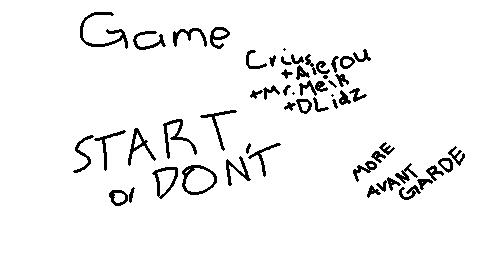 Game
Crius
+Aierou
+Mr.Meik
+DLidz
START
or DON'T
MORE
AVANT
GARDE